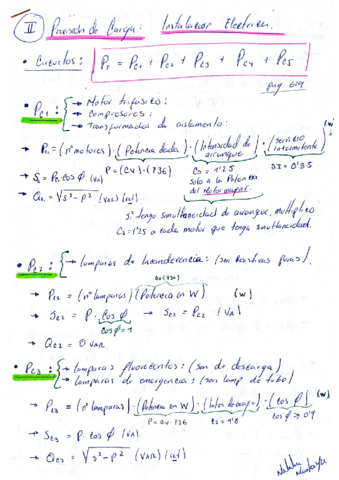 II Previsión de Carga: Instalación Eléctrica.
• Circuitos: P_T = P_C1 + P_C2 + P_C3 + P_C4 + P_C5
pag 614
• P_C1: → Motor trifásico:
→ Compresores:
→ Transformador de aislamiento:
→ P_C1 = (nº motores) · (Potencia dada) · (Intensidad de arranque) · (servicio intermitente) (W)
P = (C.V.) · (736) Cs = 1'25 SI = 0'85
solo a la Potencia del Motor mayor.
→ Q_C1 = √S²-P² (VAR) (ind)
si tengo simultaneidad de arranque, multiplico
Cs = 1'25 a cada motor que tenga simultaneidad.
• P_C2: → lamparas de Incandescencia: (son Resistivas puras).
→ P_C2 = (nº lamparas) (Potencia en W) (W)
→ S_C2 = P · cos φ → S_C2 = P_C2 (VA)
cos φ = 1
→ Q_C2 = 0 VAR
• P_C3: → lamparas fluorescentes: (son de descarga)
→ lamparas de emergencia: (son lamp de tubo)
→ P_C3 = (nº lamparas) · (Potencia en W) · (Inten descarga) · (cos φ) (W)
P = C.V · 736 Cs = 1'8 cos φ ≥ 0'9
→ S_C3 = P · cos φ (VA)
→ Q_C3 = √S²-P² (VAR) (ind)